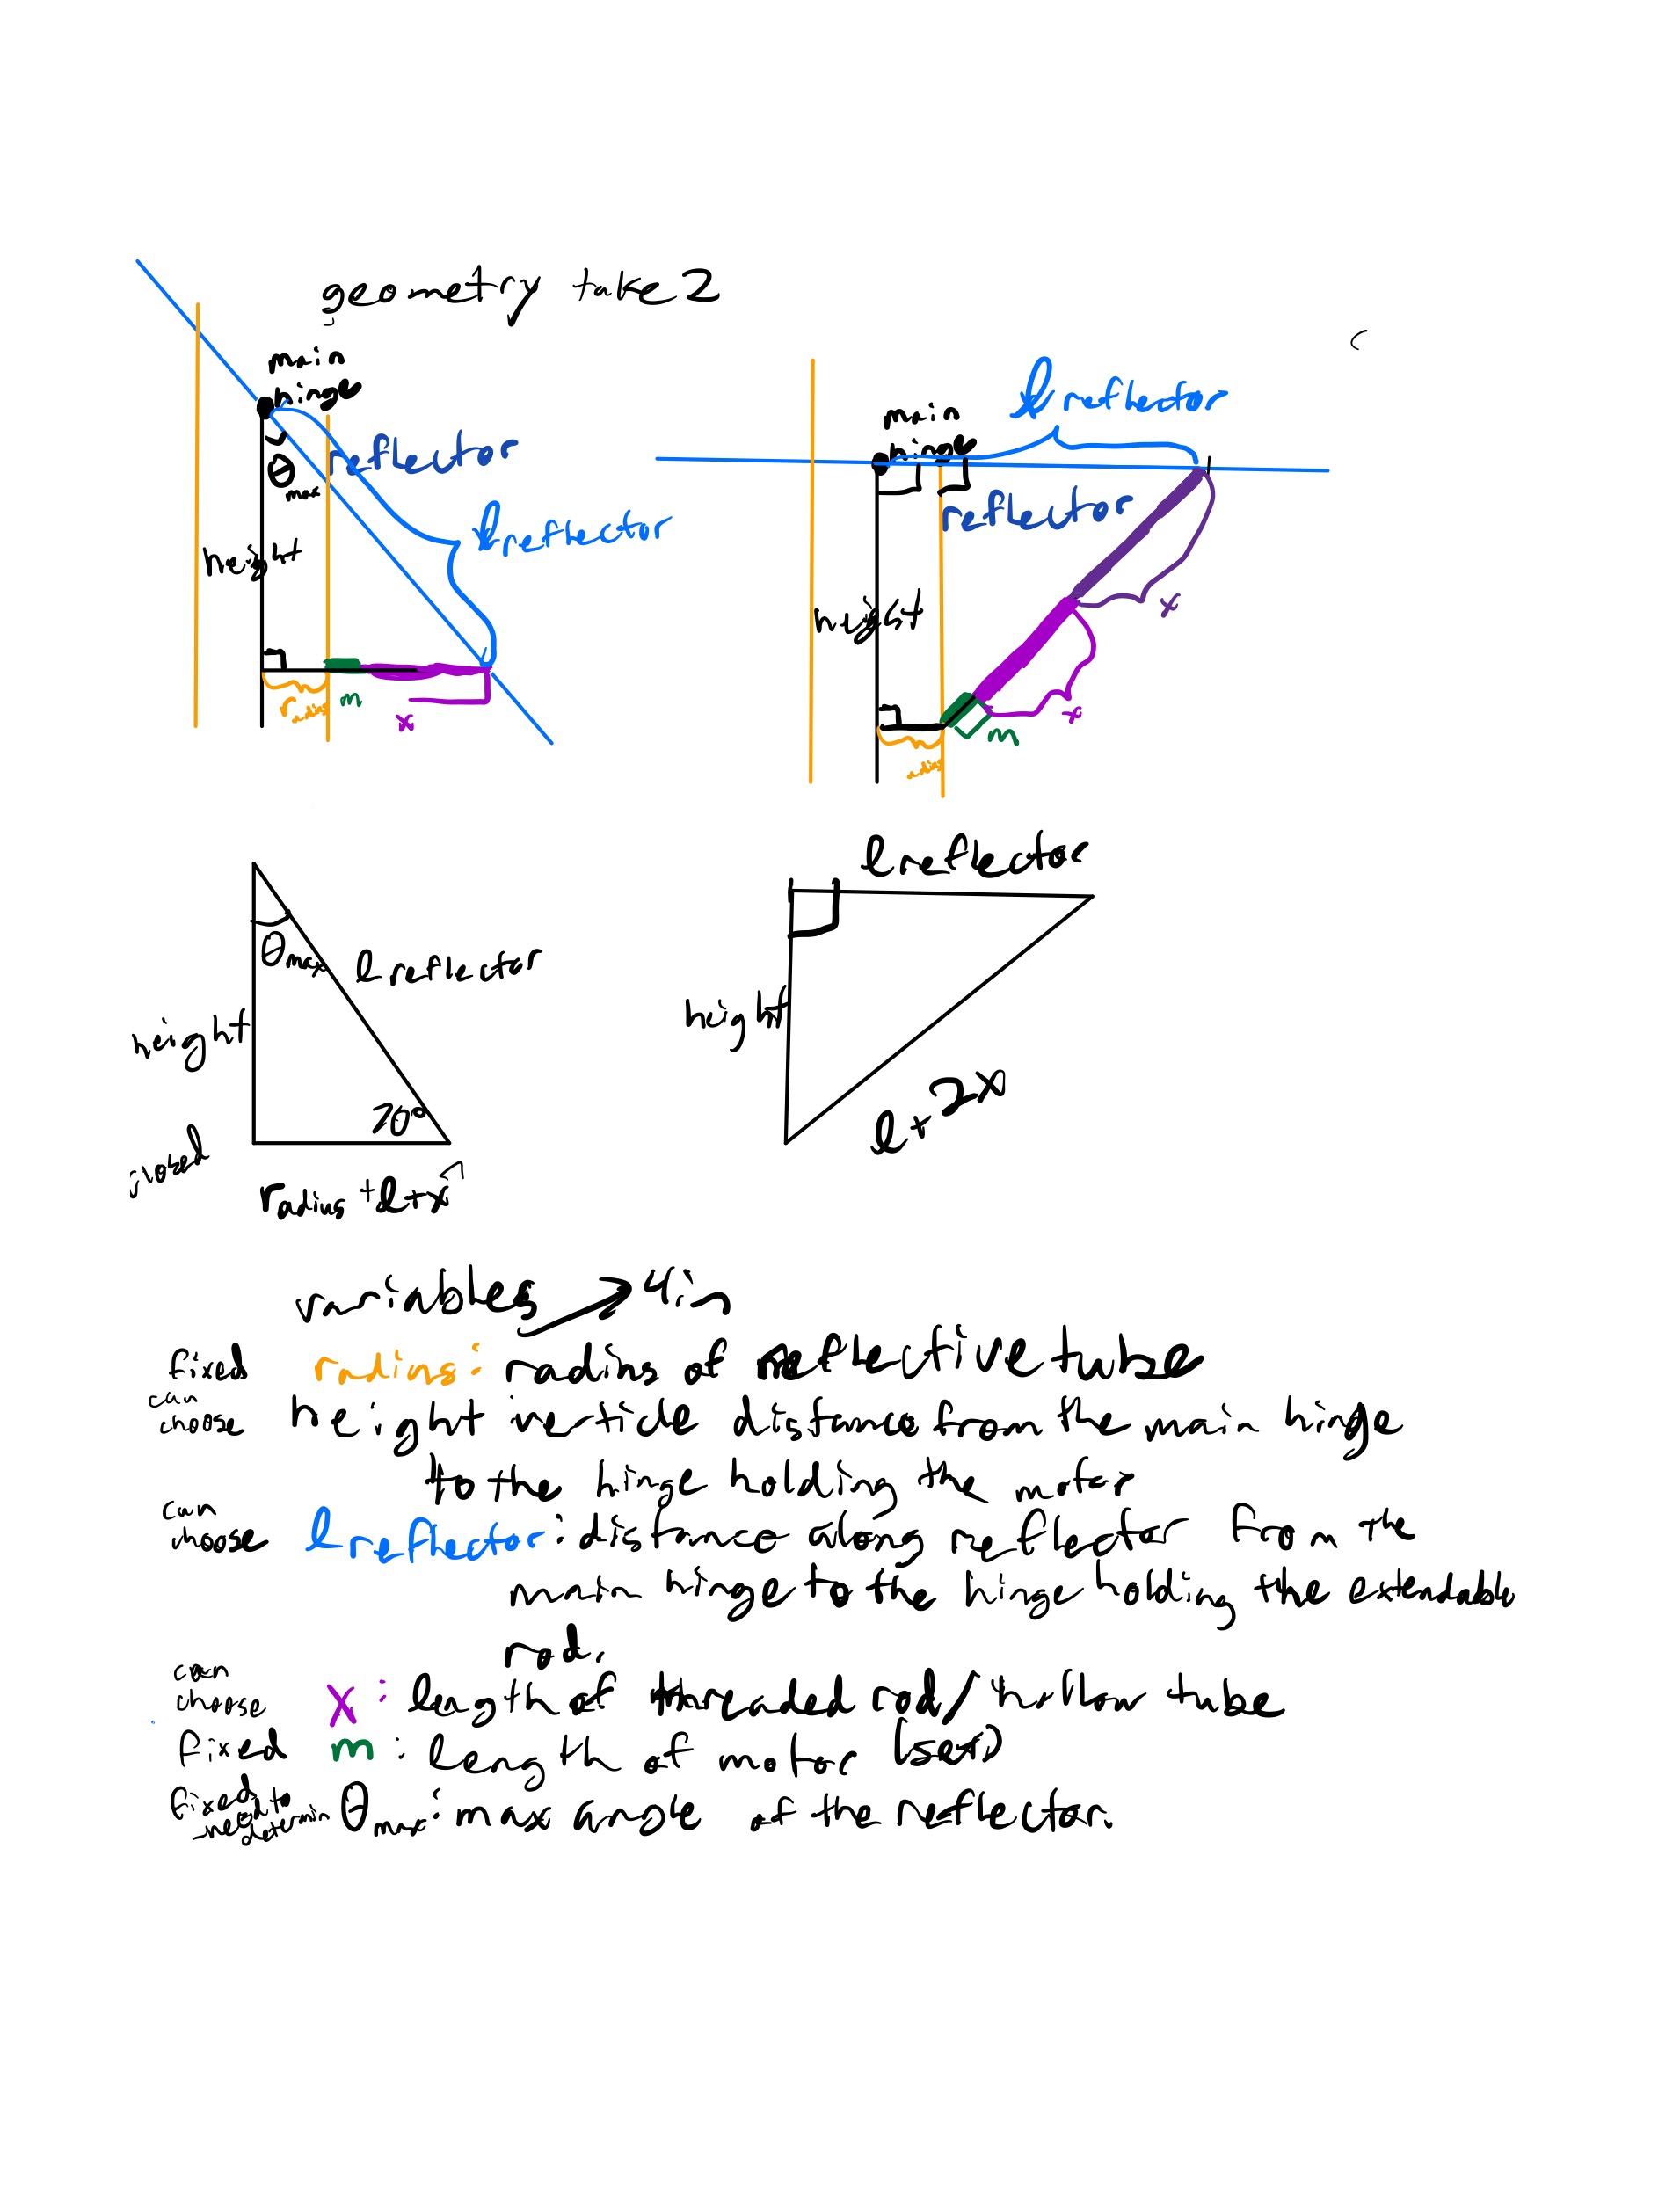 geometry take 2
main
hinge
θmax
reflector
lreflector
height
radius
m
x
main
hinge
lreflector
reflector
height
x
x
m
radius
θmax
lreflector
height
20°
closed
radius + l + x
lreflector
height
l + 2x
variables → 4in
fixed radius: radius of reflective tube
can
choose height verticle distance from the main hinge
to the hinge holding the motor
can
choose lreflector: distance along reflector from the
main hinge to the hinge holding the extendable
rod.
can
choose x: length of threaded rod/hollow tube
fixed m: length of motor (set)
fixed
need to
determin θmax: max angle of the reflector.